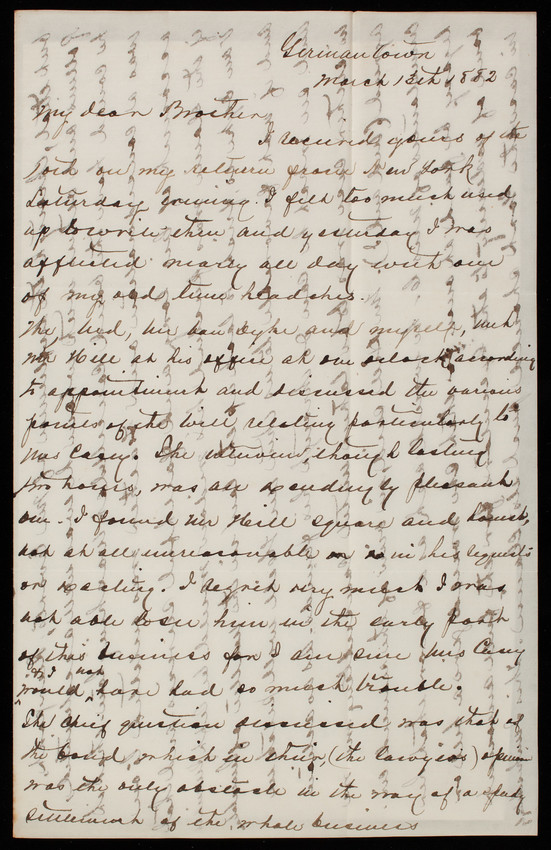 Germantown
March 13th 1882
My dear Brother
I received yours of the
10th on my return from New York
Saturday evening. I felt too much used
up to write then and yesterday I was
afflicted nearly all day with one
of my old time headaches.
Mr Van Dyke and myself, met
Mr Hill at his office at one oclock according
to appointment and discussed the various
points of the will relating particularly to
Mrs Casey. The interview, though lasting
two hours, was an exceedingly pleasant
one. I found Mr Hill square and honest,
not at all unreasonable in his requests
or exacting. I regret very much I was
not able to see him in the early part
of this business for I am sure Mrs Casey
& I not
would have had so much trouble.
The chief question discussed was that of
the bond which in their (the lawyers) opinion
was the only obstacle in the way of a speedy
settlement of the whole business